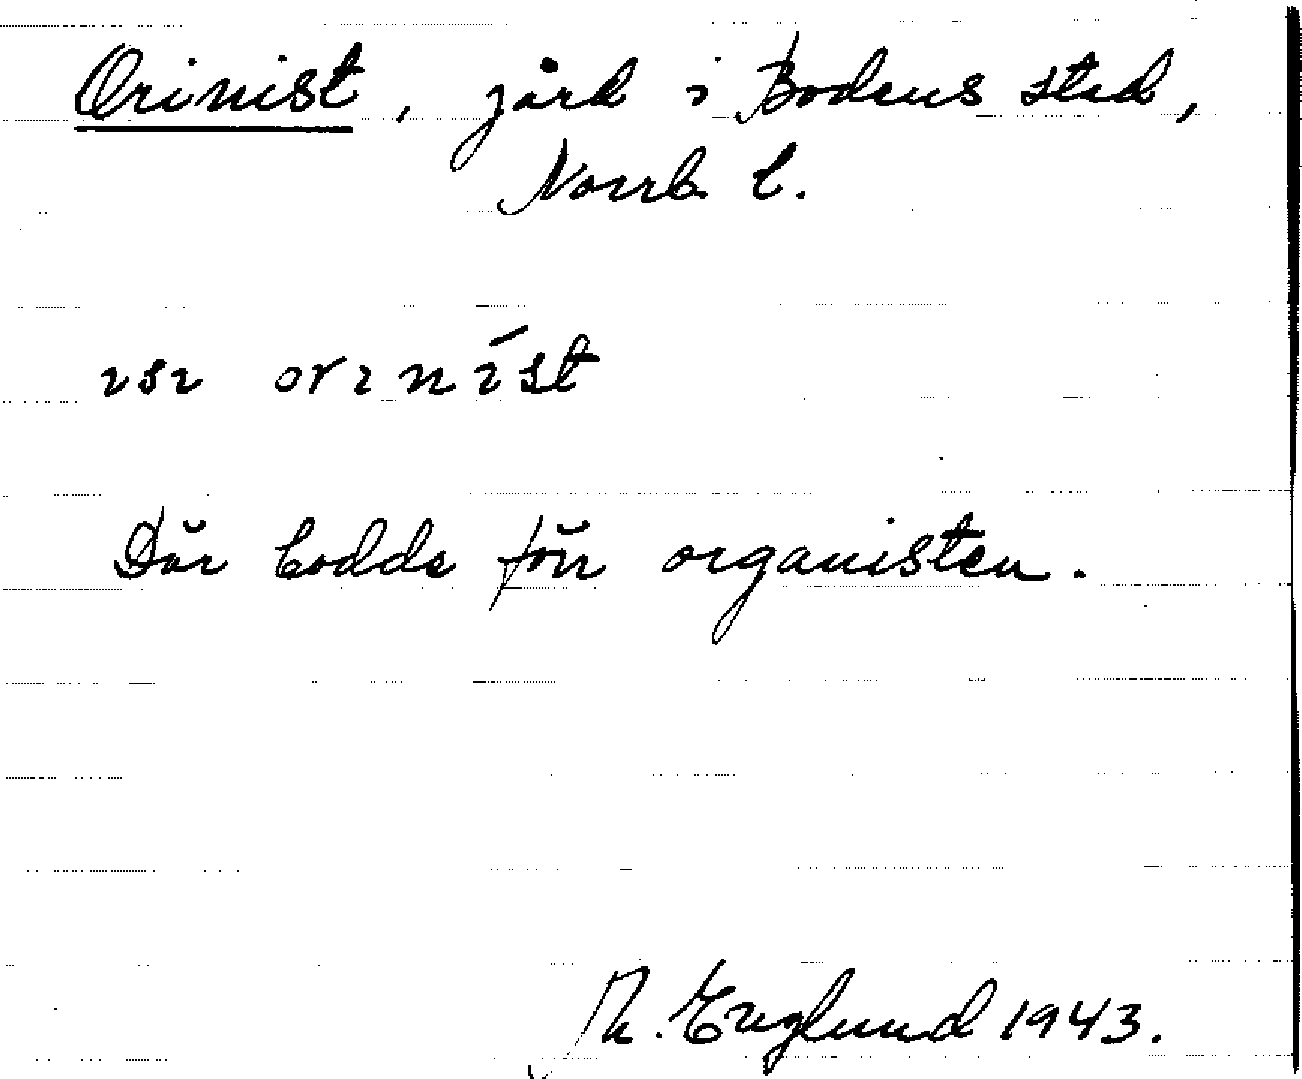 Orinist, gård i Bodens stad,
Norrb. l.
ısı orını́st
Där bodde förr organisten.
R. Englund 1943.